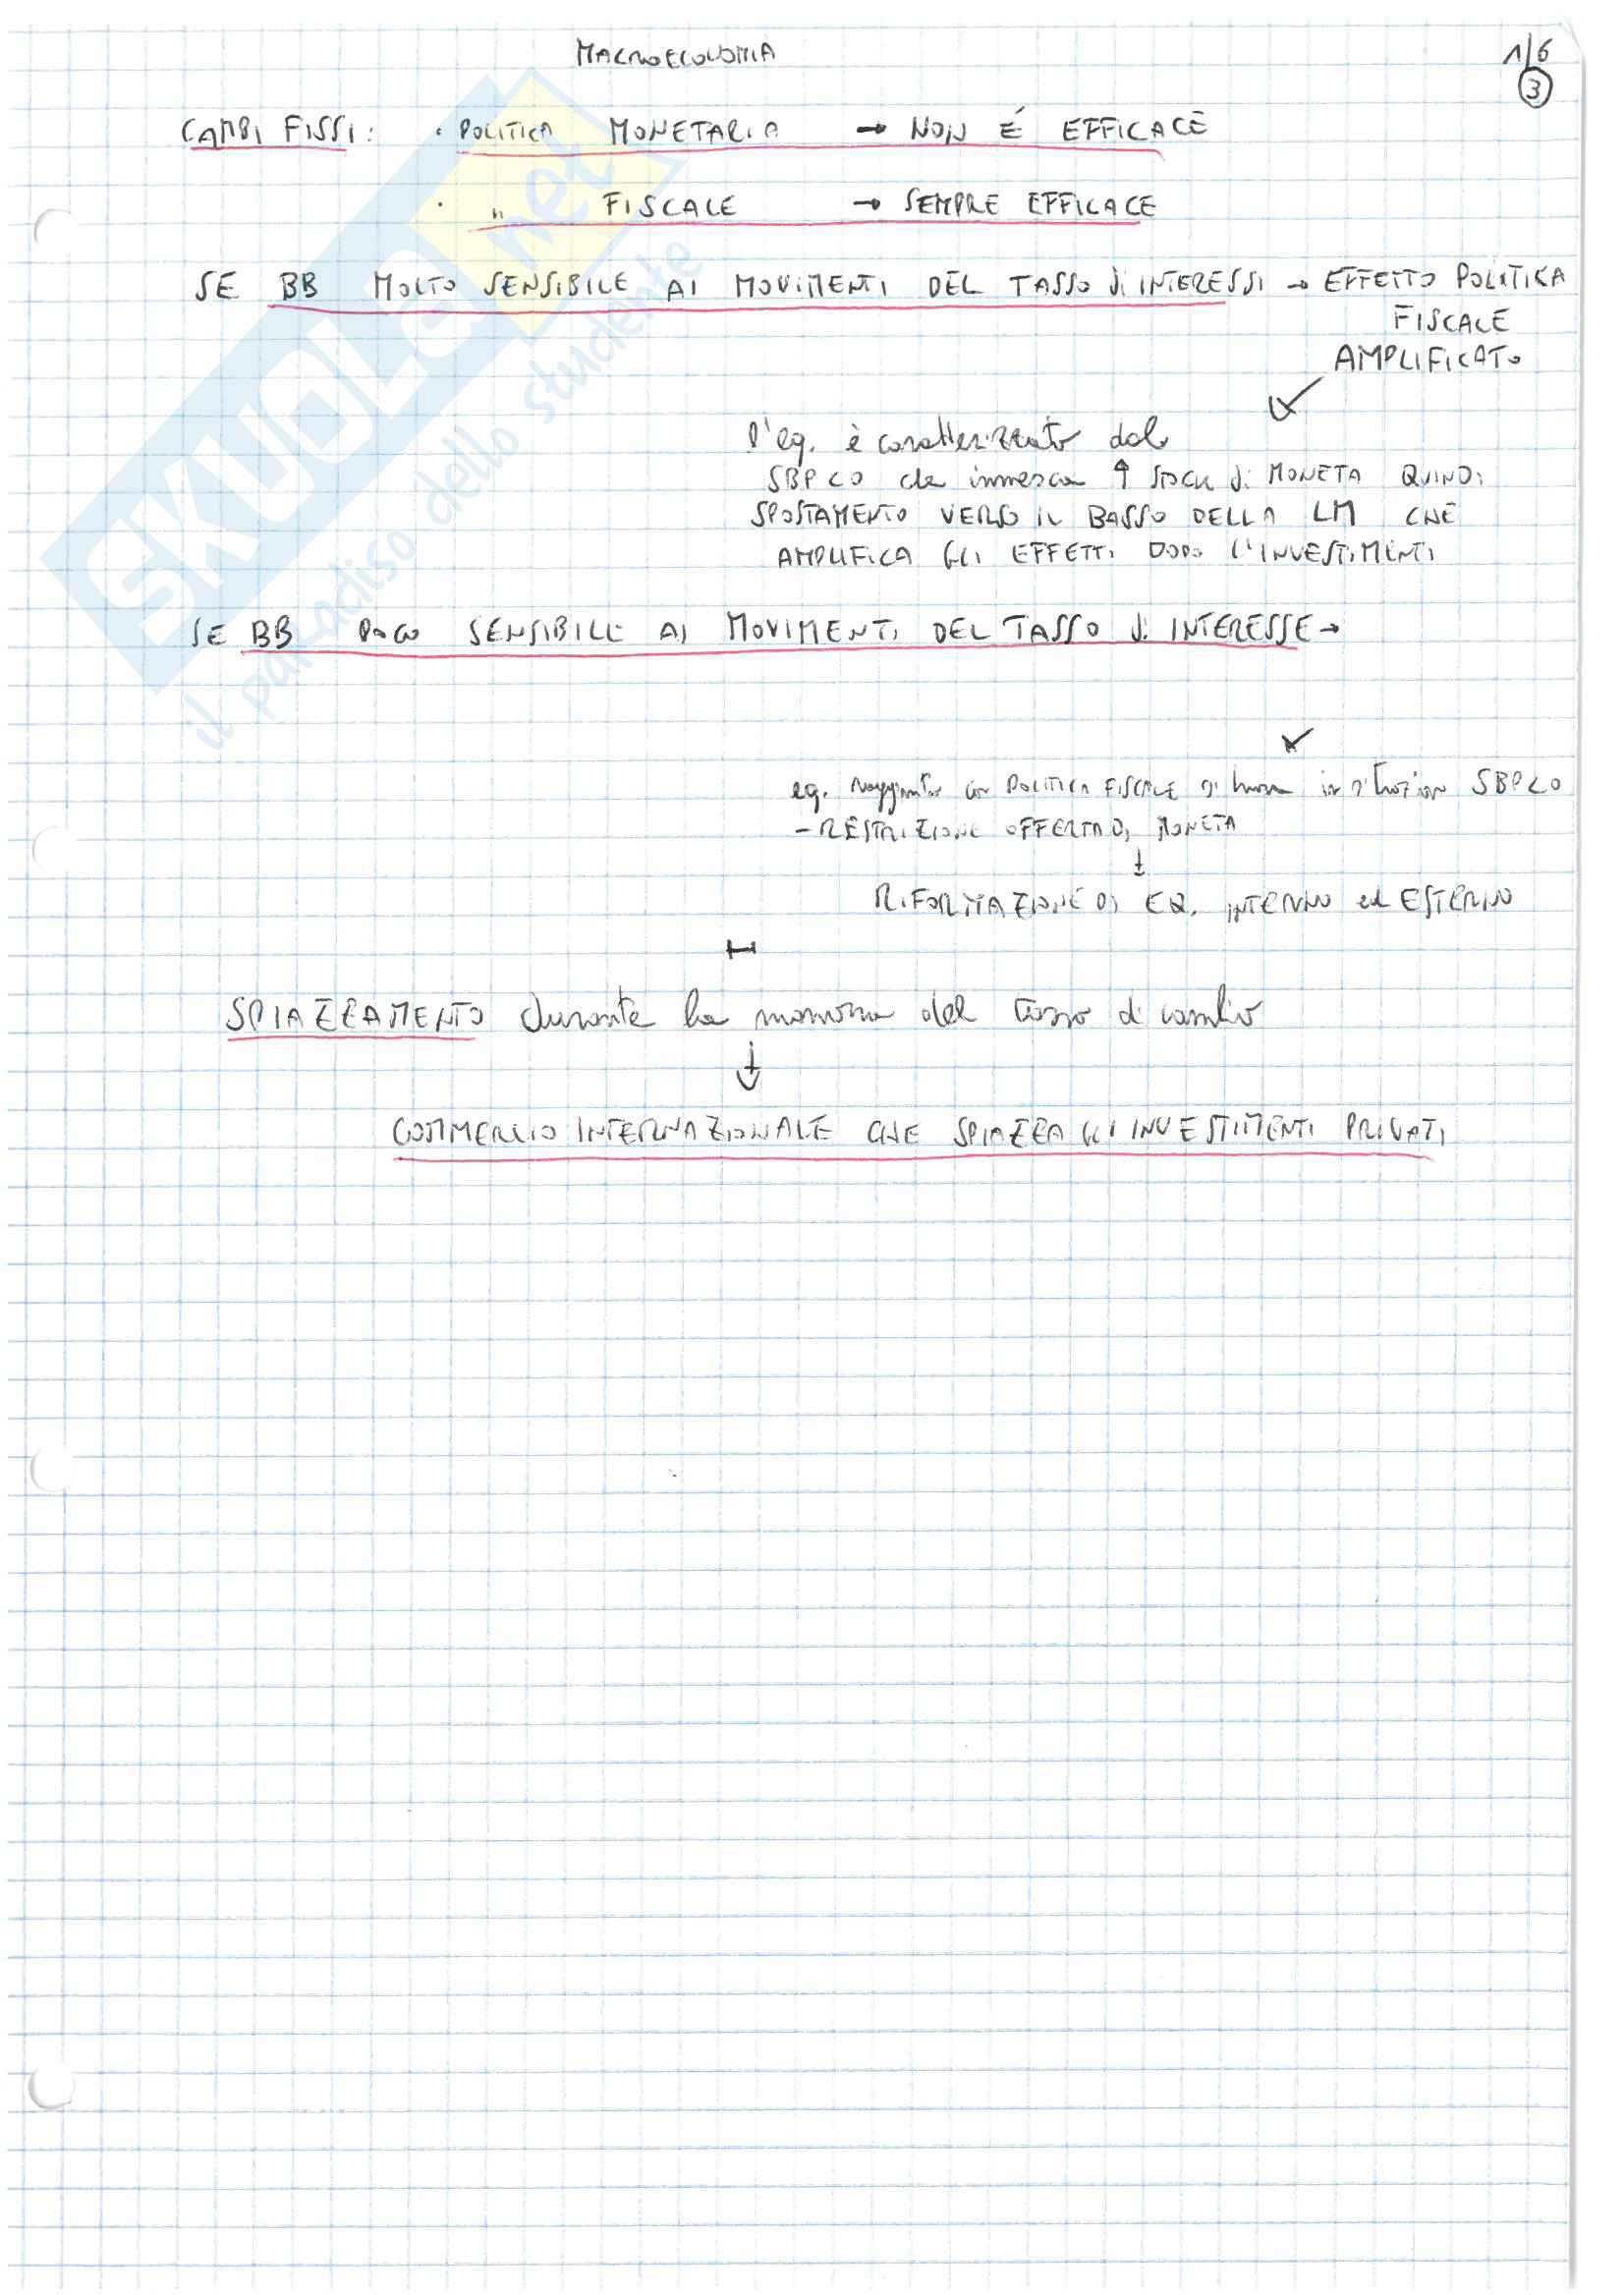 MACROECONOMIA
1/6
3
CAMBI FISSI: • POLITICA MONETARIA → NON É EFFICACE
• " FISCALE → SEMPRE EFFICACE
SE BB MOLTO SENSIBILE AI MOVIMENTI DEL TASSO di INTERESSI → EFFETTO POLITICA
FISCALE
AMPLIFICATO
l'eq. è caratterizzato dal
SBP<0 che innesca ↑ STOCK di MONETA QUINDI
SPOSTAMENTO VERSO IL BASSO DELLA LM CHE
AMPLIFICA GLI EFFETTI DOPO L'INVESTIMENTI
SE BB POCO SENSIBILE AI MOVIMENTI DEL TASSO di INTERESSE →
eq. raggiunto con POLITICA FISCALE si trova in situazion SBP<0
- RESTRIZIONE OFFERTA DI MONETA
↓
RIFORMAZIONE DI EQ. INTERNO ed ESTERNO
SPIAZZAMENTO durante la manovra del tasso di cambio
↓
COMMERCIO INTERNAZIONALE CHE SPIAZZA GLI INVESTIMENTI PRIVATI
SKUOLA.net
il paradiso dello studente